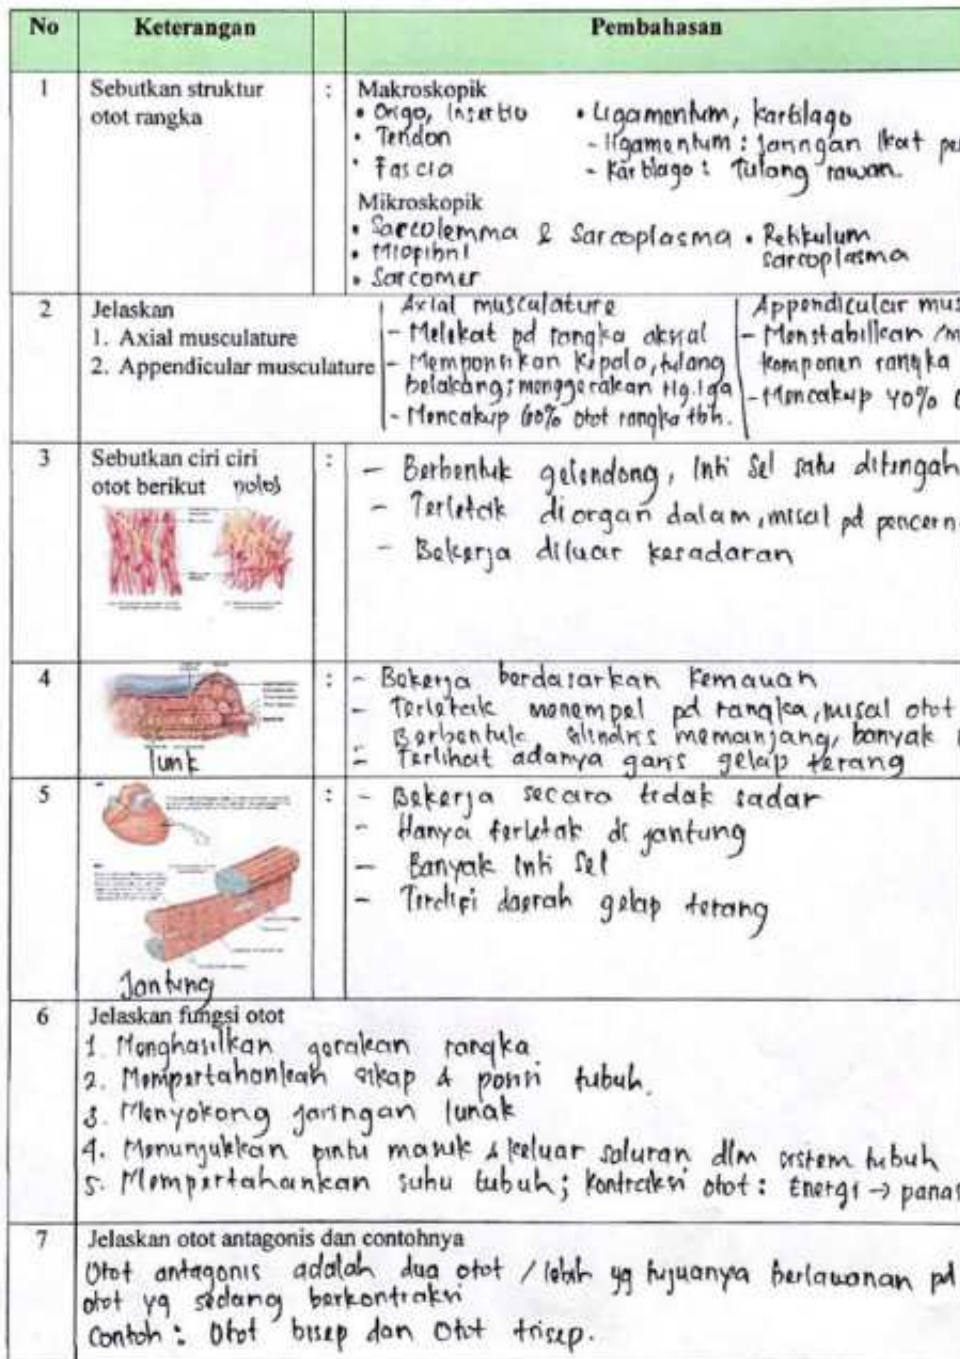 No Keterangan Pembahasan
1 Sebutkan struktur otot rangka :
Makroskopik
• Origo, Insertio
• Tendon
• Fascia
• Ligamentum, kartilago
- ligamentum : jaringan ikat
- kartilago : tulang rawan.
Mikroskopik
• Sarcolemma & Sarcoplasma
• Miofibril
• Sarcomer
• Retikulum sarcoplasma
2 Jelaskan
1. Axial musculature
2. Appendicular musculature
Axial musculature
- Melekat pd rangka aksial
- Memposisikan kepala, tulang
belakang; menggerakan tlg.iga
- Mencakup 60% otot rangka tbh.
Appendicular
- Menstabilkan
komponen rangka
- Mencakup 40%
3 Sebutkan ciri ciri
otot berikut polos :
- Berbentuk gelendong, inti sel satu ditengah
- Terletak diorgan dalam, misal pd
- Bekerja diluar kesadaran
4 lurik :
- Bekerja berdasarkan kemauan
- Terletak menempel pd rangka, misal otot
- Berbentuk silindris memanjang, banyak
- Terlihat adanya garis gelap terang
5 Jantung :
- Bekerja secara tidak sadar
- Hanya terletak di jantung
- Banyak inti sel
- Terdiri daerah gelap terang
6 Jelaskan fungsi otot
1. Menghasilkan gerakan rangka
2. Mempertahankan sikap & posisi tubuh.
3. Menyokong jaringan lunak
4. Menunjukkan pintu masuk & keluar saluran dlm sistem tubuh
5. Mempertahankan suhu tubuh; kontraksi otot : Energi → panas
7 Jelaskan otot antagonis dan contohnya
Otot antagonis adalah dua otot / lebih yg tujuanya berlawanan pd
otot yg sedang berkontraksi
Contoh : Otot bisep dan Otot trisep.